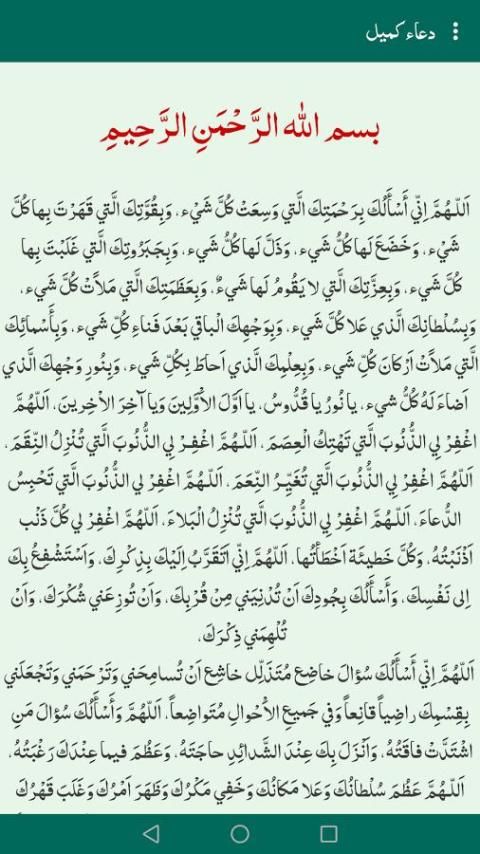 دعاء كميل
بسم الله الرَّحْمَنِ الرَّحِيمِ
اَللّهُمَّ اِنّي أَسْأَلُكَ بِرَحْمَتِكَ الَّتي وَسِعَتْ كُلَّ شَيْء، وَبِقُوَّتِكَ الَّتي قَهَرْتَ بِها كُلَّ
شَيْء، وَخَضَعَ لَها كُلُّ شَيء، وَذَلَّ لَها كُلُّ شَيء، وَبِجَبَرُوتِكَ الَّتي غَلَبْتَ بِها
كُلَّ شَيء، وَبِعِزَّتِكَ الَّتي لا يَقُومُ لَها شَيءٌ، وَبِعَظَمَتِكَ الَّتي مَلاَتْ كُلَّ شَيء،
وَبِسُلْطانِكَ الَّذي عَلا كُلَّ شَيء، وَبِوَجْهِكَ الْباقي بَعْدَ فَناءِ كُلِّ شَيء، وَبِأَسْمائِكَ
الَّتي مَلاَتْ اَرْكانَ كُلِّ شَيء، وَبِعِلْمِكَ الَّذي اَحاطَ بِكُلِّ شَيء، وَبِنُورِ وَجْهِكَ الَّذي
اَضاءَ لَهُ كُلُّ شيء، يا نُورُ يا قُدُّوسُ، يا اَوَّلَ الاَْوَّلِينَ وَيا آخِرَ الاْخِرينَ، اَللّهُمَّ
اغْفِرْ لِي الذُّنُوبَ الَّتي تَهْتِكُ الْعِصَمَ، اَللّهُمَّ اغْفِرْ لِي الذُّنُوبَ الَّتي تُنْزِلُ النِّقَمَ،
اَللّهُمَّ اغْفِرْ لِي الذُّنُوبَ الَّتي تُغَيِّرُ النِّعَمَ، اَللّهُمَّ اغْفِرْ لي الذُّنُوبَ الَّتي تَحْبِسُ
الدُّعاءَ، اَللّهُمَّ اغْفِرْ لِي الذُّنُوبَ الَّتي تُنْزِلُ الْبَلاءَ، اَللّهُمَّ اغْفِرْ لي كُلَّ ذَنْب
اَذْنَبْتُهُ، وَكُلَّ خَطيئَة اَخْطَأتُها، اَللّهُمَّ اِنّي اَتَقَرَّبُ اِلَيْكَ بِذِكْرِكَ، وَاَسْتَشْفِعُ بِكَ
اِلى نَفْسِكَ، وَأَسْأَلُكَ بِجُودِكَ اَنْ تُدْنِيَني مِنْ قُرْبِكَ، وَاَنْ تُوزِعَني شُكْرَكَ، وَاَنْ
تُلْهِمَني ذِكْرَكَ،
اَللّهُمَّ اِنّي أَسْأَلُكَ سُؤالَ خاضِع مُتَذَلِّل خاشِع اَنْ تُسامِحَني وَتَرْحَمَني وَتَجْعَلَني
بِقِسْمِكَ راضِياً قانِعاً وَفي جَميعِ الاَْحْوالِ مُتَواضِعاً، اَللّهُمَّ وَأَسْأَلُكَ سُؤالَ مَنِ
اشْتَدَّتْ فاقَتُهُ، وَاَنْزَلَ بِكَ عِنْدَ الشَّدائِدِ حاجَتَهُ، وَعَظُمَ فيما عِنْدَكَ رَغْبَتُهُ،
اَللّهُمَّ عَظُمَ سُلْطانُكَ وَعَلا مَكانُكَ وَخَفِي مَكْرُكَ وَظَهَرَ اَمْرُكَ وَغَلَبَ قَهْرُكَ